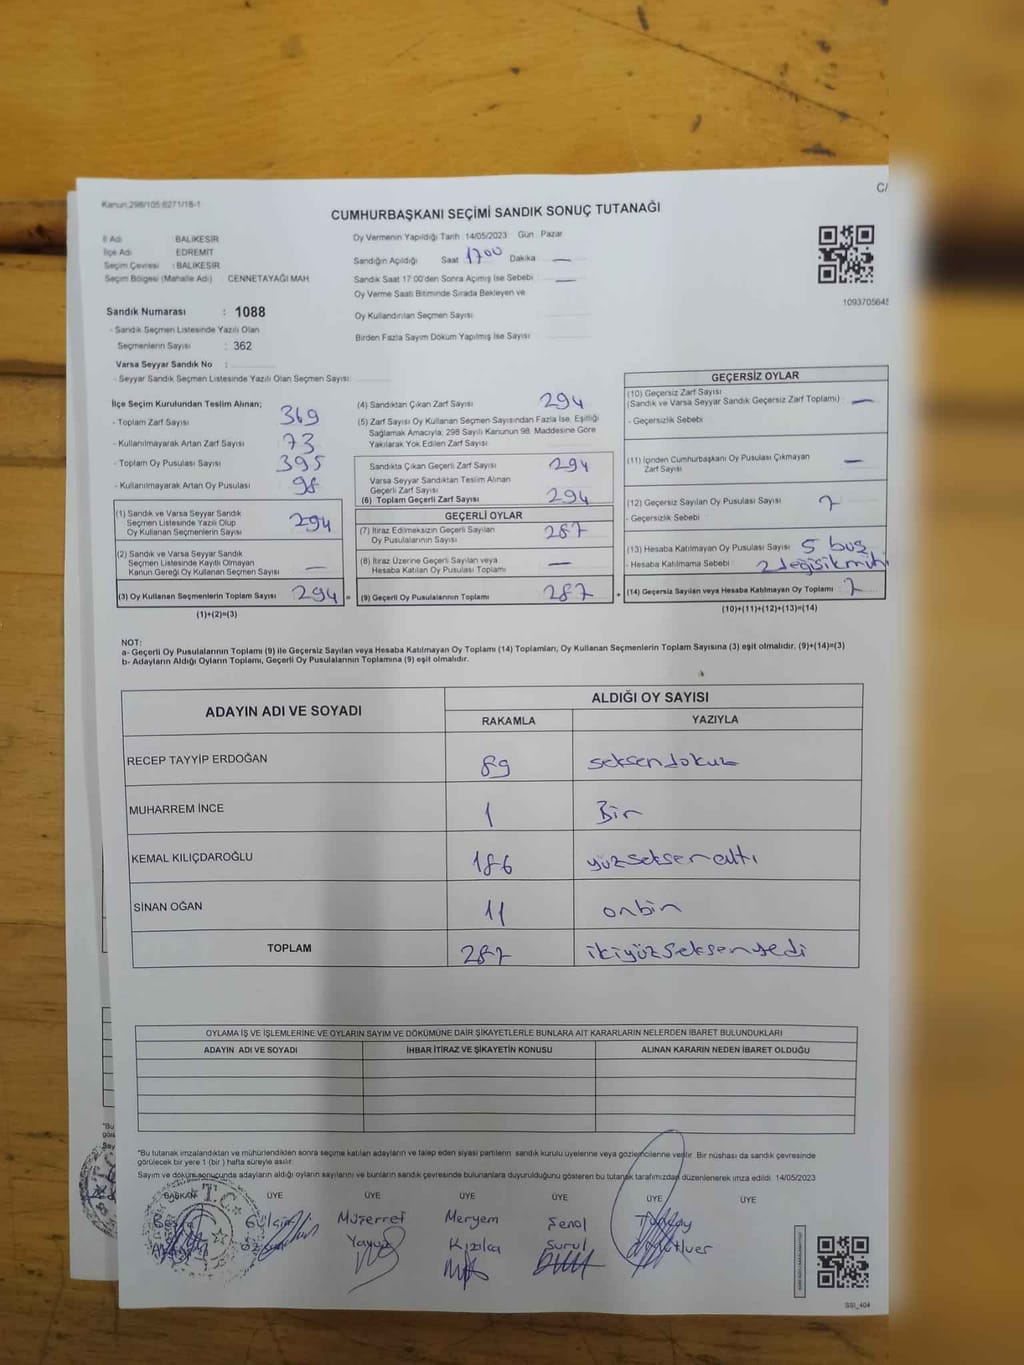 C/
Kanun:298/105:6271/18-1
CUMHURBAŞKANI SEÇİMİ SANDIK SONUÇ TUTANAĞI
İl Adı BALIKESİR
İlçe Adı EDREMİT
Seçim Çevresi : BALIKESİR
Seçim Bölgesi (Mahalle Adı) CENNETAYAĞI MAH
Oy Vermenin Yapıldığı Tarih 14/05/2023 Gün Pazar
Sandığın Açıldığı Saat 1700 Dakika —
Sandık Saat 17:00'den Sonra Açımış İse Sebebi —
Oy Verme Saati Bitiminde Sırada Bekleyen ve
Oy Kullandırılan Seçmen Sayısı
Birden Fazla Sayım Döküm Yapılmış İse Sayısı
1093705645
Sandık Numarası : 1088
- Sandık Seçmen Listesinde Yazılı Olan
Seçmenlerin Sayısı : 362
Varsa Seyyar Sandık No :
- Seyyar Sandık Seçmen Listesinde Yazılı Olan Seçmen Sayısı:
İlçe Seçim Kurulundan Teslim Alınan;
- Toplam Zarf Sayısı 369
- Kullanılmayarak Artan Zarf Sayısı 73
- Toplam Oy Pusulası Sayısı 395
- Kullanılmayarak Artan Oy Pusulası 98
(1) Sandık ve Varsa Seyyar Sandık
Seçmen Listesinde Yazılı Olup
Oy Kullanan Seçmenlerin Sayısı 294
(2) Sandık ve Varsa Seyyar Sandık
Seçmen Listesinde Kayıtlı Olmayan
Kanun Gereği Oy Kullanan Seçmen Sayısı —
(3) Oy Kullanan Seçmenlerin Toplam Sayısı 294 =
(1)+(2)=(3)
(4) Sandıktan Çıkan Zarf Sayısı 294
(5) Zarf Sayısı Oy Kullanan Seçmen Sayısından Fazla İse, Eşitliği
Sağlamak Amacıyla; 298 Sayılı Kanunun 98. Maddesine Göre
Yakılarak Yok Edilen Zarf Sayısı
Sandıkta Çıkan Geçerli Zarf Sayısı 294
Varsa Seyyar Sandıktan Teslim Alınan
Geçerli Zarf Sayısı
(6) Toplam Geçerli Zarf Sayısı 294
GEÇERLİ OYLAR
(7) İtiraz Edilmeksizin Geçerli Sayılan
Oy Pusulalarının Sayısı 287
(8) İtiraz Üzerine Geçerli Sayılan veya
Hesaba Katılan Oy Pusulası Toplamı —
(9) Geçerli Oy Pusulalarının Toplamı 287 +
GEÇERSİZ OYLAR
(10) Geçersiz Zarf Sayısı
(Sandık ve Varsa Seyyar Sandık Geçersiz Zarf Toplamı) —
- Geçersizlik Sebebi
(11) İçinden Cumhurbaşkanı Oy Pusulası Çıkmayan
Zarf Sayısı —
(12) Geçersiz Sayılan Oy Pusulası Sayısı 7
- Geçersizlik Sebebi
(13) Hesaba Katılmayan Oy Pusulası Sayısı 5 boş
- Hesaba Katılmama Sebebi 2 değişik müh
(14) Geçersiz Sayılan veya Hesaba Katılmayan Oy Toplamı 7
(10)+(11)+(12)+(13)=(14)
NOT:
a- Geçerli Oy Pusulalarının Toplamı (9) ile Geçersiz Sayılan veya Hesaba Katılmayan Oy Toplamı (14) Toplamları, Oy Kullanan Seçmenlerin Toplam Sayısına (3) eşit olmalıdır. (9)+(14)=(3)
b- Adayların Aldığı Oyların Toplamı, Geçerli Oy Pusulalarının Toplamına (9) eşit olmalıdır.
ADAYIN ADI VE SOYADI ALDIĞI OY SAYISI
RAKAMLA YAZIYLA
RECEP TAYYİP ERDOĞAN 89 seksendokuz
MUHARREM İNCE 1 Bir
KEMAL KILIÇDAROĞLU 186 yüzseksenaltı
SİNAN OĞAN 11 onbir
TOPLAM 287 ikiyüzseksenyedi
OYLAMA İŞ VE İŞLEMLERİNE VE OYLARIN SAYIM VE DÖKÜMÜNE DAİR ŞİKAYETLERLE BUNLARA AİT KARARLARIN NELERDEN İBARET BULUNDUKLARI
ADAYIN ADI VE SOYADI İHBAR İTİRAZ VE ŞİKAYETİN KONUSU ALINAN KARARIN NEDEN İBARET OLDUĞU
"Bu tutanak imzalandıktan ve mühürlendikten sonra seçime katılan adayların ve talep eden siyasi partilerin sandık kurulu üyelerine veya gözlemcilerine verilir. Bir nüshası da sandık çevresinde
görülecek bir yere 1 (bir) hafta süreyle asılır.
Sayım ve döküm sonucunda adayların aldığı oyların sayılarını ve bunların sandık çevresinde bulunanlara duyurulduğunu gösteren bu tutanak tarafımızdan düzenlenerek imza edildi. 14/05/2023
BAŞKAN ÜYE ÜYE ÜYE ÜYE ÜYE ÜYE
T.C.
Gülşin Müşerref Meryem Şenol
Yavuz Kızılca Surul
SSI_404